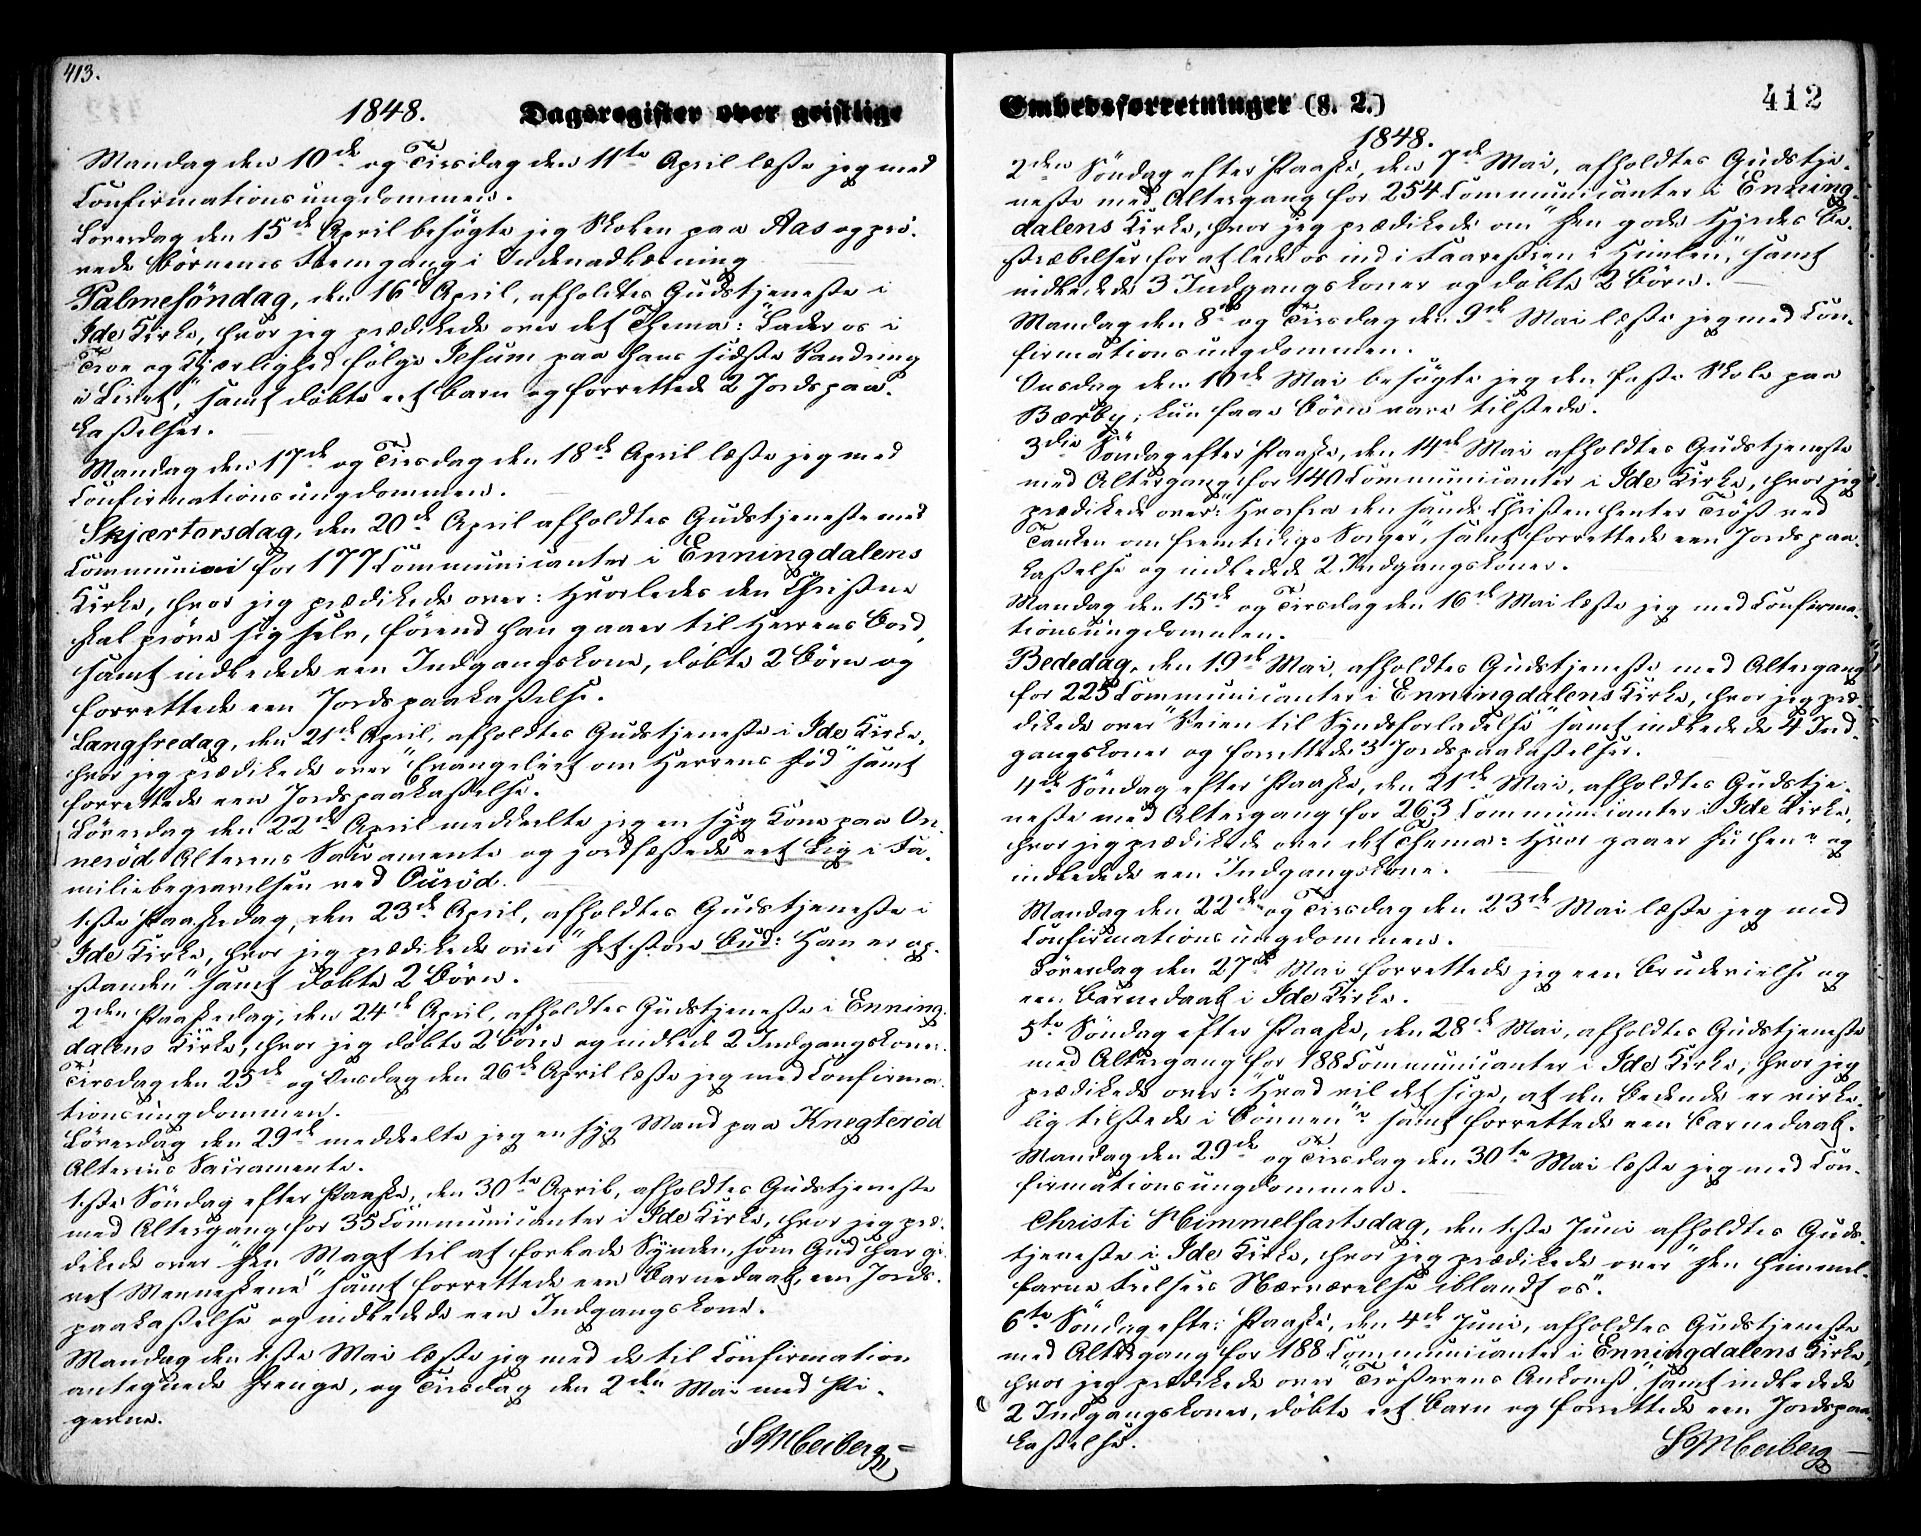 413.
1848. Dagsregister over geistlige
Mandag den 10de og Tirsdag den 11te April læste jeg med
Confirmationsungdommen.
Løverdag den 15de April besøgte jeg Skolen paa Aas og prø-
vede Børnenes Fremgang i Indenadlæsning
Palmesöndag, den 16de April, afholdtes Gudstjeneste i
Ide Kirke, hvor jeg prædikede over det Thema: "Lader os i
Troe og Kjærlighed følge Jesum paa Hans sidste Vandring
i Livet", samt døbte eet Barn og forrettede 2 Jordspaa-
kastelser.
Mandag den 17de og Tirsdag den 18de April læste jeg med
Confirmationsungdommen.
Skjærtorsdag, den 20de April afholdtes Gudstjeneste med
Communion for 177 Communicanter i Enningdalens
Kirke, hvor jeg prædikede over: Hvorledes den Christne
skal prøve sig selv, førend han gaaer til Herrens Bord,
samt indledede een Indgangskone, døbte 2 Børn og
forrettede een Jordspaakastelse.
Langfredag, den 21de April, afholdtes Gudstjeneste i Ide Kirke,
hvor jeg prædikede over "Evangeliet om Herrens Død" samt
forrettede een Jordspaakastelse.
Løverdag den 22de April meddeelte jeg en syg Kone paa On-
neröd Alterens Sacramente og jordfæstede eet Lig i Fa-
miliebegravelsen ved
1ste Paaskedag, den 23de April, afholdtes Gudstjeneste i
Ide Kirke, hvor jeg prædikede over "Det store Bud: Han er op-
standen" samt døbte 2 Børn.
2den Paaskedag, den 24de April, afholdtes Gudstjeneste i Enning-
dalens Kirke, hvor jeg døbte 2 Børn og indledede 2 Indgangskoner.
Tirsdag den 25de og Onsdag den 26de April læste jeg med Confirma-
tionsungdommen.
Løverdag den 29de meddeelte jeg en syg Mand paa Knegteröd
Alterens Sacramente.
1ste Söndag efter Paaske, den 30te April, afholdtes Gudstjeneste
med Altergang for 35 Communicanter i Ide Kirke, hvor jeg præ-
dikede over "Den Magt til at forlade Synden, som Gud har gi-
vet Menneskene" samt forrettede een Barnedaab, een Jords-
paakastelse og indledede een Indgangskone.
Mandag den 1ste Mai læste jeg med de til Confirmation
antegnede Drenge, og Tirsdag den 2den Mai med Pi-
gerne.
SMeiberg
Embedsforretninger (S. 2.)
412
1848.
2den Söndag efter Paaske, den 7de Mai, afholdtes Gudstje-
neste med Altergang for 254 Communicanter i Enning-
dalens Kirke, hvor jeg prædikede om "Den gode Hyrdes Be-
stræbelser for at lede os ind i Faarestien i Himlen", samt
indledede 3 Indgangskoner og døbte 2 Børn.
Mandag den 8de og Tirsdag den 9de Mai læste jeg med Con-
firmationsungdommen.
Onsdag den 10de Mai besøgte jeg den faste Skole paa
Bærby; kun faae Børn vare tilstede.
3die Söndag efter Paaske, den 14de Mai afholdtes Gudstjeneste
med Altergang for 140 Communicanter i Ide Kirke, hvor jeg
prædikede over: "Hvorfra den sande Christen henter Trøst ved
Tanken om fremtidige Sorger", samt forrettede een Jordspaa-
kastelse og indledede 2 Indgangskoner.
Mandag den 15de og Tirsdag den 16de Mai læste jeg med Confirma-
tionsungdommen.
Bededag, den 19de Mai, afholdtes Gudstjeneste med Altergang
for 225 Communicanter i Enningdalens Kirke, hvor jeg præ-
dikede over "Veien til Syndsforladelse" samt indledede 4 Ind-
gangskoner og forrettede 3 Jordspaakastelser.
4de Söndag efter Paaske, den 21de Mai, afholdtes Gudstje-
neste med Altergang for 263 Communicanter i Ide Kirke,
hvor jeg prædikede over det Thema: Hvor gaaer Du hen? og
indledede een Indgangskone.
Mandag den 22de og Tirsdag den 23de Mai læste jeg med
Confirmationsungdommen.
Løverdag den 27de Mai forrettede jeg een Brudevielse og
een Barnedaab i Ide Kirke.
5te Söndag efter Paaske, den 28de Mai, afholdtes Gudstjeneste
med Altergang for 188 Communicanter i Ide Kirke, hvor jeg
prædikede over: Hvad vil det sige, at den Bedende er virke-
lig tilstede i Bønnen"? samt forrettede een Barnedaab.
Mandag den 29de og Tirsdag den 30te Mai læste jeg med Con-
firmationsungdommen.
Christi Himmelfartsdag, den 1ste Juni afholdtes Guds-
tjeneste i Ide Kirke, hvor jeg prædikede over "Den himmel-
farne Frelsers Nærværelse iblandt os".
6te Söndag efter Paaske, den 4de Juni, afholdtes Gudstjeneste
med Altergang for 188 Communicanter i Enningdalens Kirke,
hvor jeg prædikede over "Trøsterens Ankomst", samt indledede
2 Indgangskoner, døbte eet Barn og forrettede een Jordspaa-
kastelse.
SMeiberg